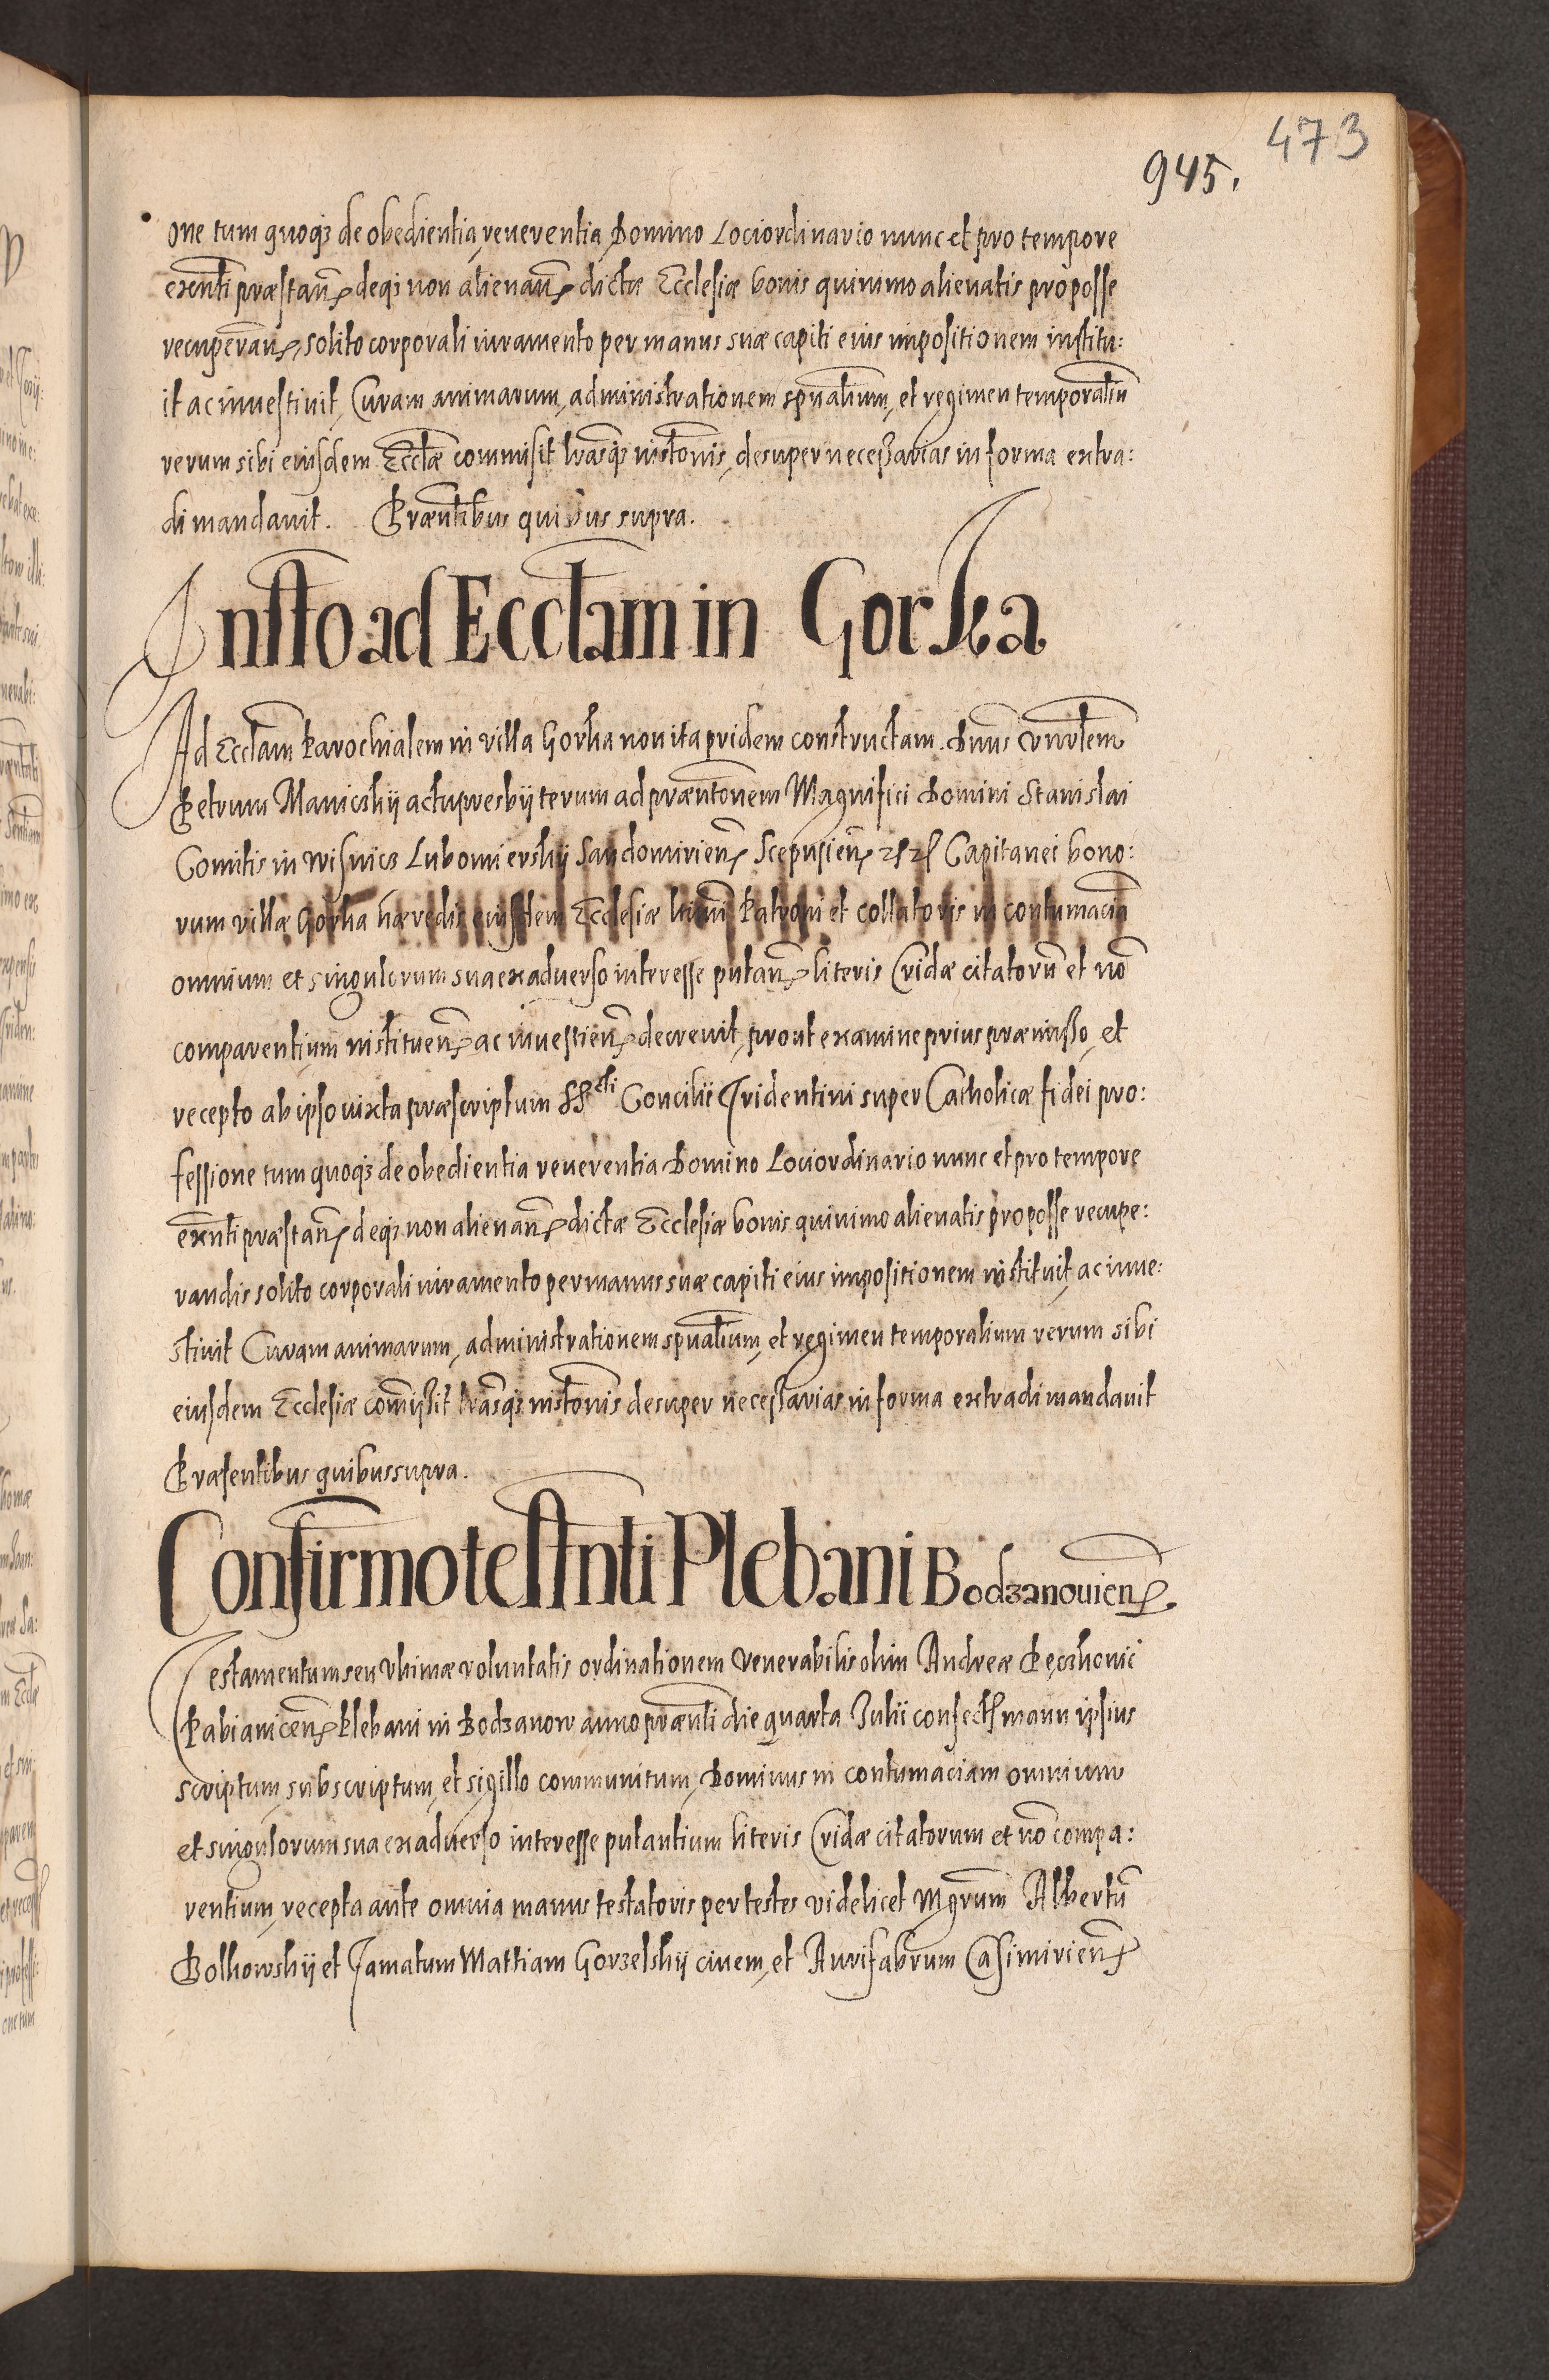 473
945.
one tum quoq3 de obedientia, reverentia Domino Lociordinario nunc et pro tempore
exñti præstañ deq3 non alienañ dictæ Ecclesiæ bonis quinimo alienatis pro posse
recuperañ, solito corporali iuramento per manus suæ capiti eius impositionem institu:
it ac inuestiuit, Curam animarum, administrationem sp̃ualium, et regimen temporaliũ
rerum sibi eiusdem Eccl̃æ commisit l̃rasq3 inst̃onis, desuper necessarias in forma extra:
di mandauit. Præñtibus quibus supra.
Inst̃o ad Eccl̃am in Gorka
Ad Eccl̃am Parochialem in villa Gorka non ita pridem constructam. Dñus Vñrlem
Petrum Maniczkÿ actu presbÿterum ad præñtonem Magnifici Domini Stanislai
Comitis in Wisnicz Lubomierskÿ Sandomirieñ Scepusieñ Capitanei bono:
rum villæ Gorka hæredis eiusdem Ecclesiæ l̃timi Patroni et collatoris in contumaciã
omnium et singulorum sua ex aduerso interesse putañ literis Cridæ citatorũ et nõ
comparentium institueñ ac inuestieñ decreuit, prout examine prius præmisso, et
recepto ab ipso iuxta præscriptum SS cti Concilii Tridentini super Catholicæ fidei pro:
fessione tum quoq3 de obedientia reuerentia Domino Lociordinario nunc et pro tempore
exñti præstañ deq3 non alienañ dictæ Ecclesiæ bonis quinimo alienatis pro posse recupe:
randis solito corporali iuramento per manus suæ capiti eius impositionem instituit, ac inue:
stiuit Curam animarum, administrationem sp̃ualium, et regimen temporalium rerum sibi
eiusdem Ecclesiæ com̃isit l̃rasq3 inst̃onis desuper necessarias in forma extradi mandauit
Præsentibus quibus supra.
Confirm̃o testm̃nti Plebani Bodzanouieñ.
Testamentum seu Vltimæ voluntatis ordinationem Venerabilis olim Andreæ
Pabianiceñ Plebani in Bodzanow anno præñti die quarta Julii confect manu ipsius
scriptum, subscriptum, et sigillo communitum, Dominus in contumaciam omnium
et singulorum sua ex aduerso interesse putantium literis Cridæ citatorum et nõ compa:
rentium, recepta ante omnia manus testatoris per testes videlicet Mgrum Albertũ
Bolkowskÿ et Famatum Mattiam Gorzelskÿ ciuem, et Aurifabrum Casimirieñ